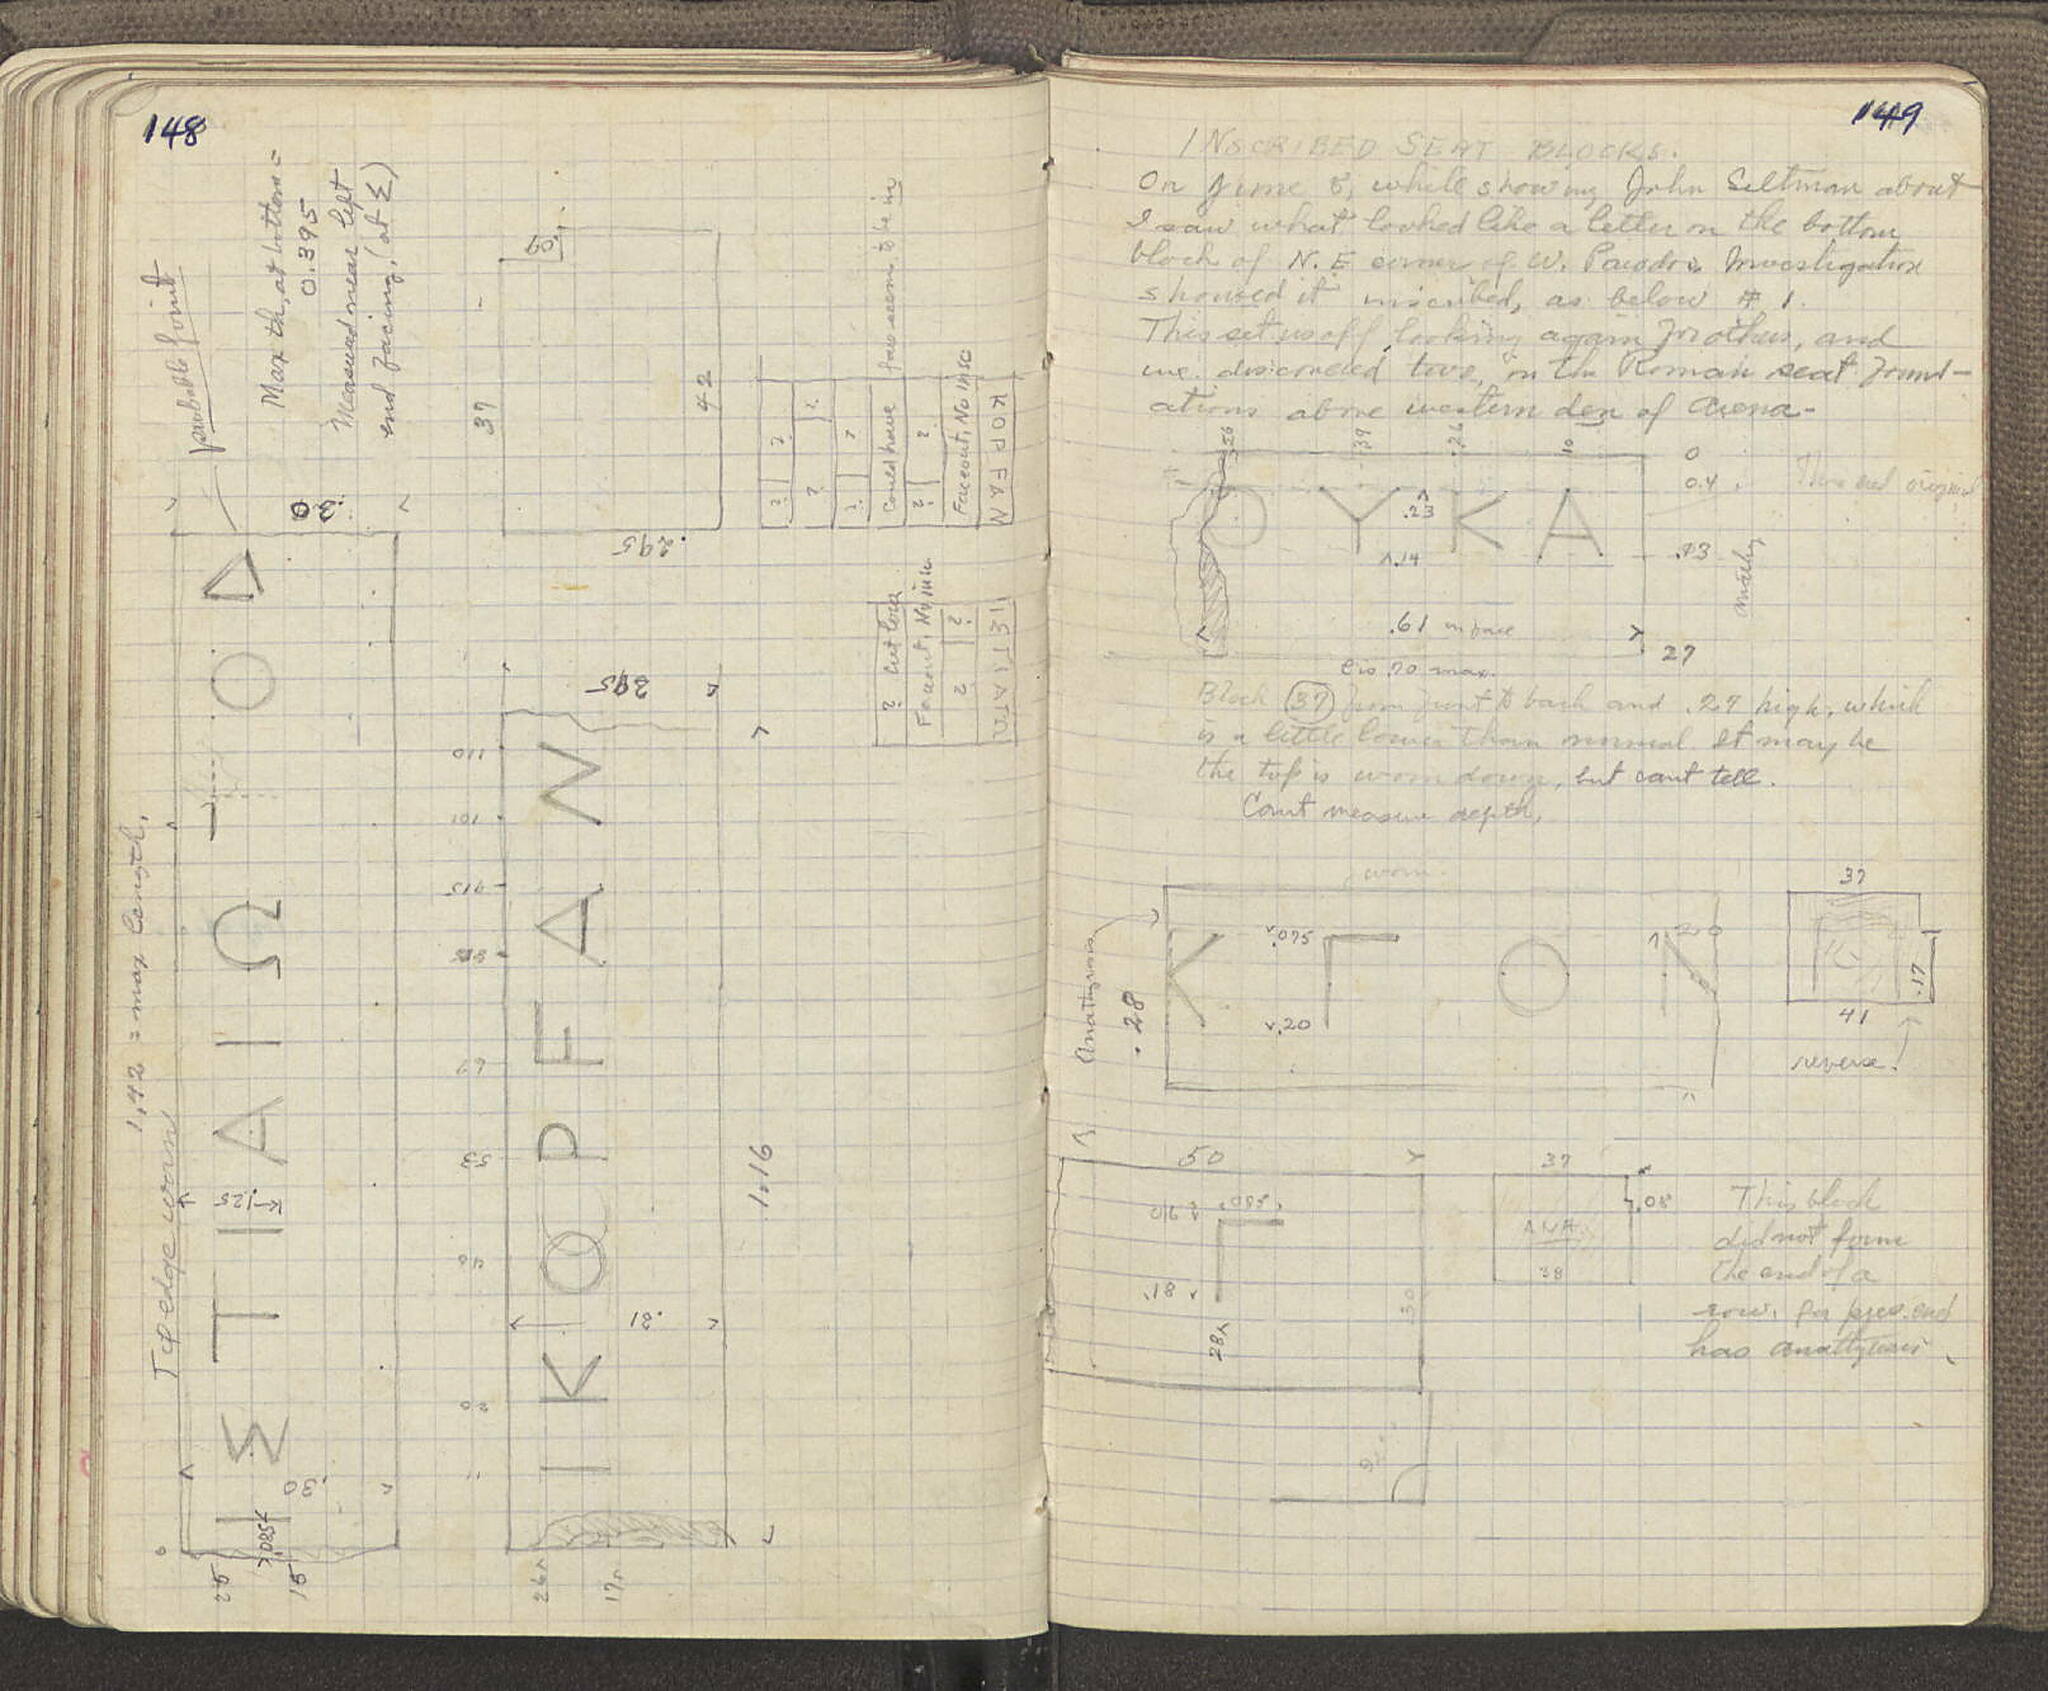 148
1.42 = max length.
Top edge worn
probable joint
Max th, at bottom =
0.395
Measured near left
end facing, (at Σ)
Ι Σ Τ Ι Α Ι Ω Ο Δ
.30
.125
.30
.085
25
15
37
.09
42
.295
110
101
915
67
53
40
20
11
Ι Κ Ο Ρ F Α Ν
.395
.21
1.16
26
17
Could have
face seems to be in
Face out, No insc
Κ Ο Ρ F Α Ν
? cut loca
Face out, No insc.
149
INSCRIBED SEAT BLOCKS.
On June 8, while showing John Seltman about
I saw what looked like a letter on the bottom
block of N. E corner of W. Parodos. Investigation
showed it inscribed, as below # 1.
This set us off looking again for others, and
we discovered two, on the Roman seat found-
ations above western den of arena-
.56
.39
.26
10
0
0.4
This end original
Ο Υ Κ Α
.23
.14
.13
.61 in face
27
Block 37 from front to back and .27 high, which
is a little lower than normal. It may be
the top is worn down, but cant tell.
Cant measure depth,
worn.
Anathyrosis
.28
Κ Γ Ο Ν
.075
.20
37
.17
41
reverse
50
.085
.18
28
.30
37
.08
ΑΝΑ.
38
This block
did not form
the end of a
row. For pres. end
has anathyrosis.